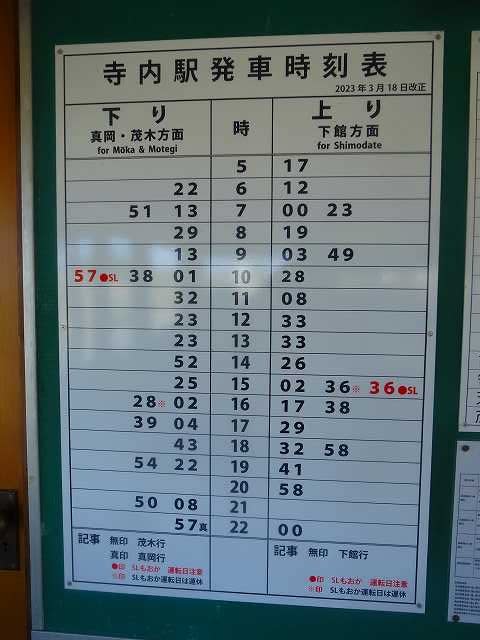 寺内駅発車時刻表
2023年3月18日改正
下り 時 上り
真岡・茂木方面 下館方面
for Mōka & Motegi for Shimodate
5 17
22 6 12
51 13 7 00 23
29 8 19
13 9 03 49
57●SL 38 01 10 28
32 11 08
23 12 33
23 13 33
52 14 26
25 15 02 36※ 36●SL
28※ 02 16 17 38
39 04 17 29
43 18 32 58
54 22 19 41
20 58
50 08 21
57真 22 00
記事 無印 茂木行
真印 真岡行
●印 SLもおか 運転日注意
※印 SLもおか運転日は運休
記事 無印 下館行
●印 SLもおか 運転日注意
※印 SLもおか運転日は運休